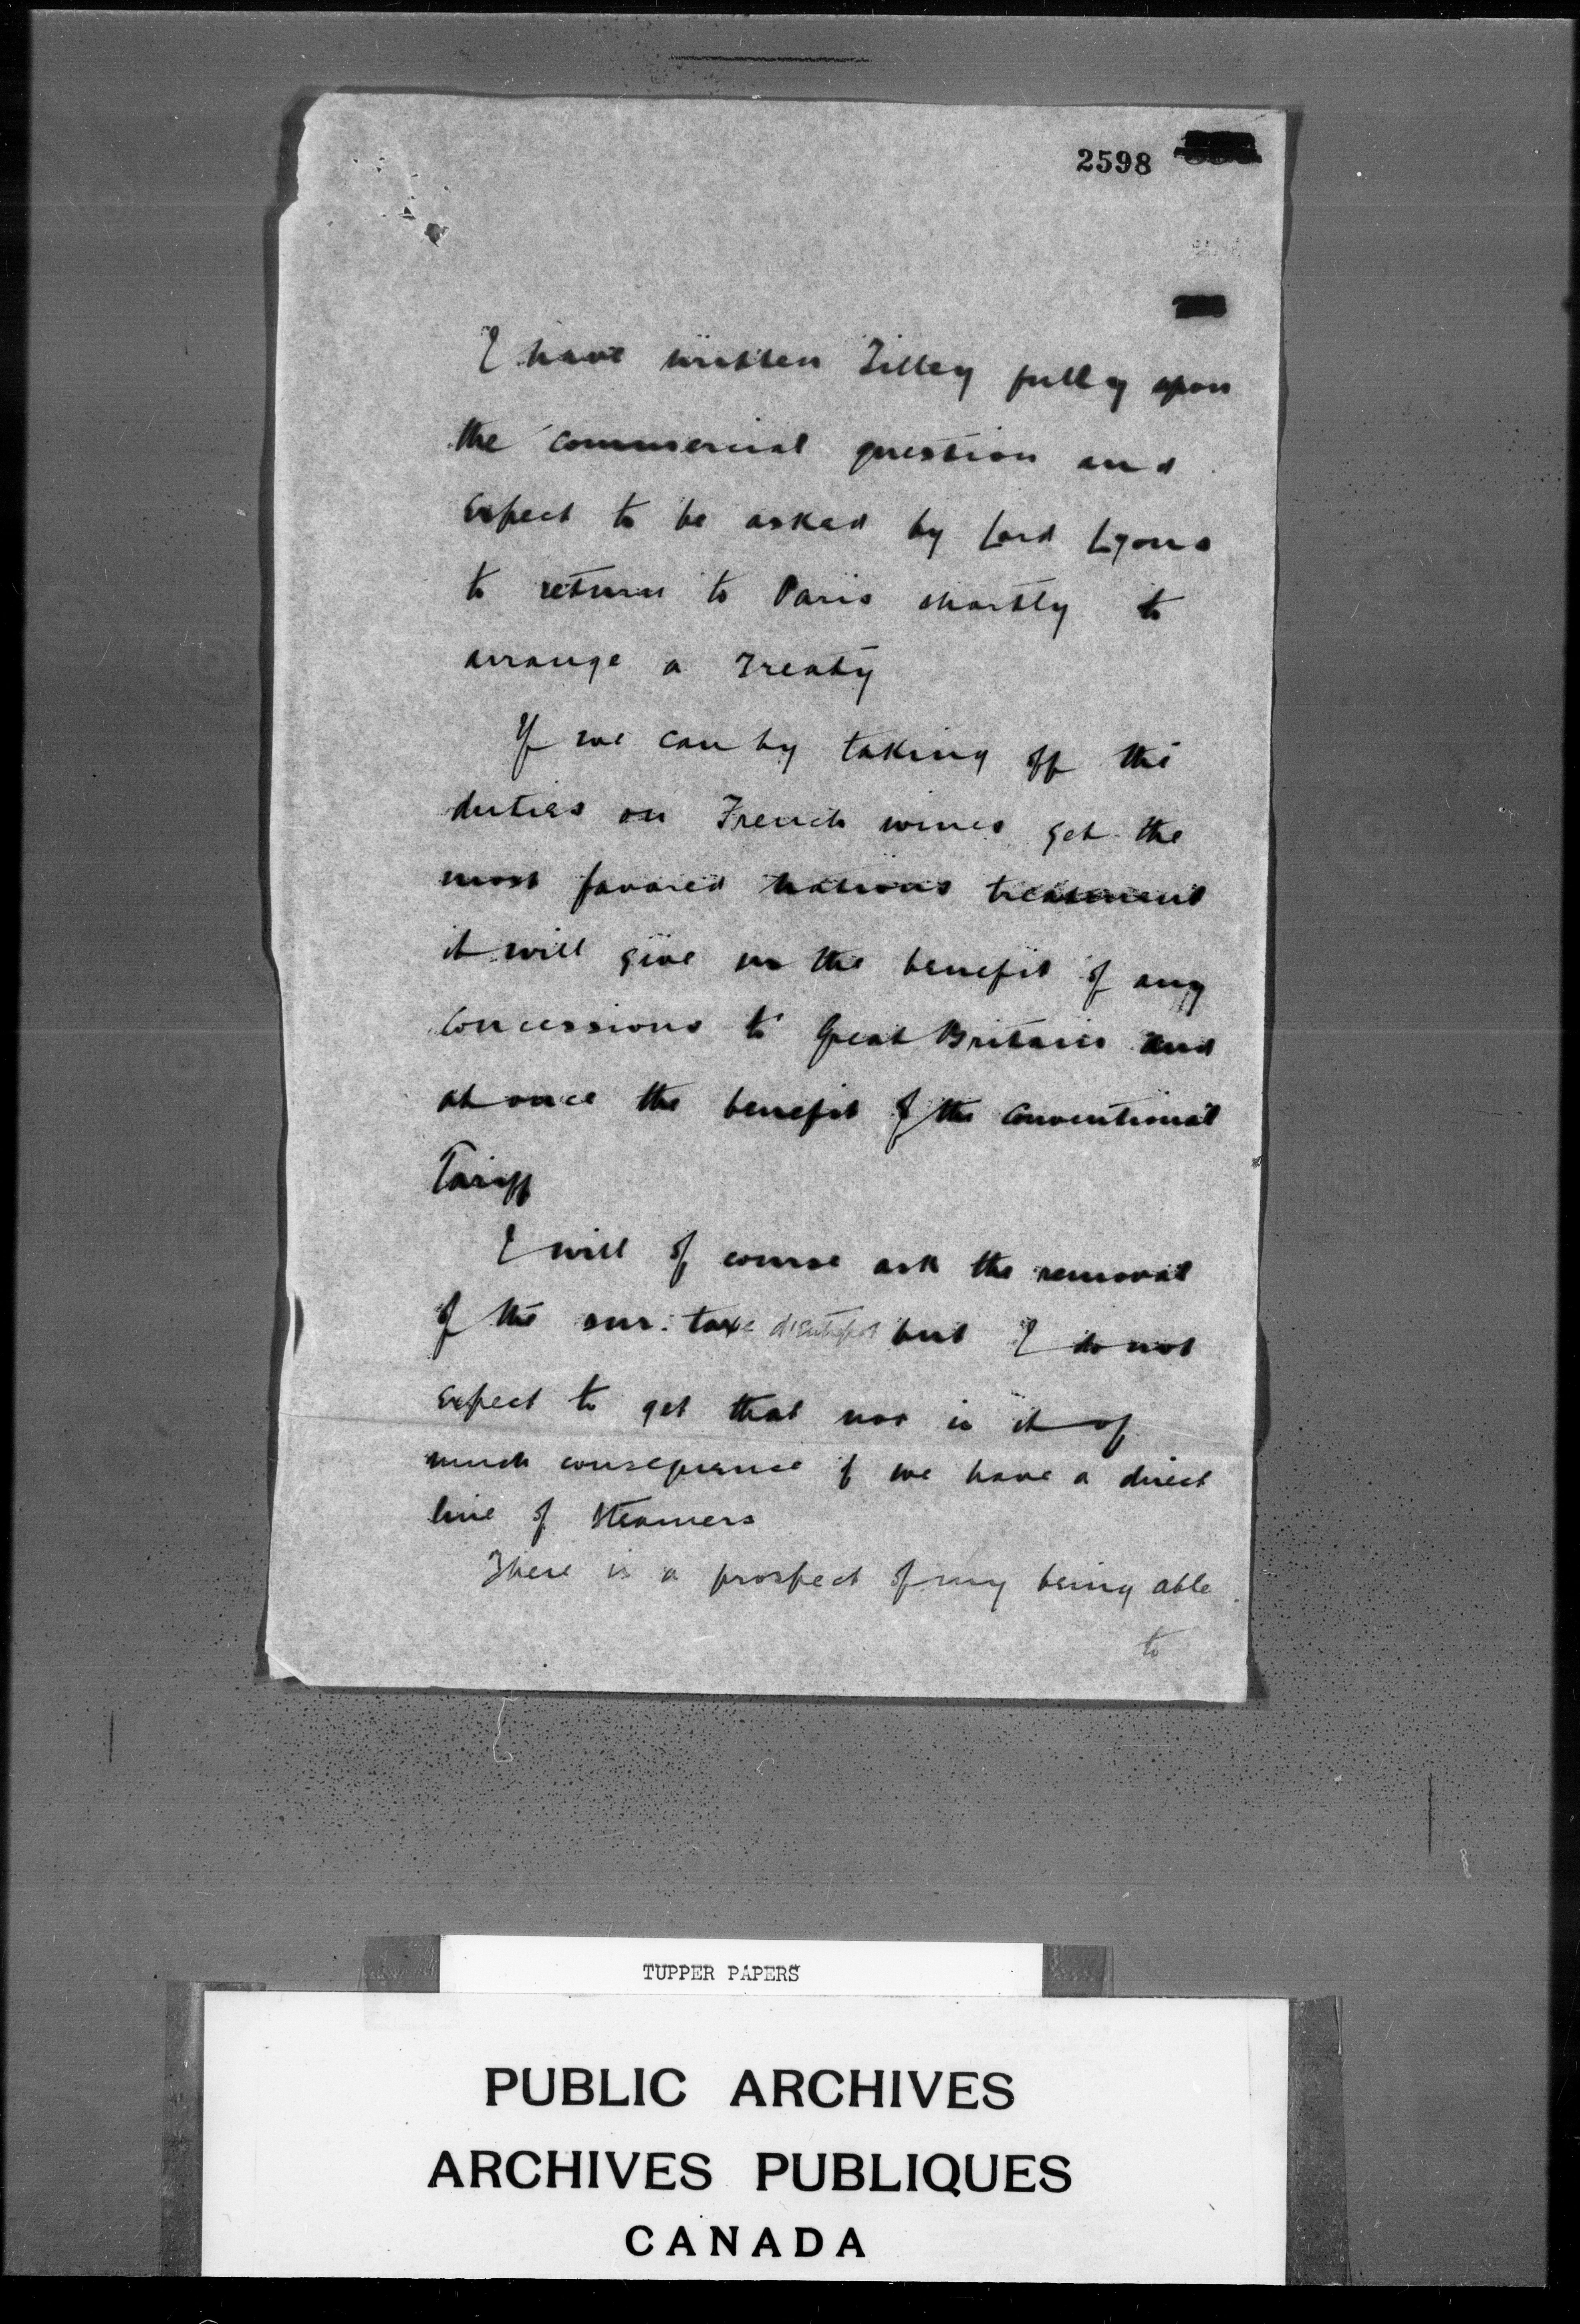 2598
I have written Tilley fully upon
the commercial question and
expect to be asked by Lord Lyons
to return to Paris shortly to
arrange a Treaty
If we can by taking off the
duties on French wines get the
most favored nations treatment
it will give us the benefit of any
concessions to Great Britain and
at once the benefit of the conventional
Tariff
I will of course ask the removal
of the sur-taxe d'entrepot but I do not
expect to get that nor is it of
much consequence if we have a direct
line of Steamers
There is a prospect of my being able
to
TUPPER PAPERS
PUBLIC ARCHIVES
ARCHIVES PUBLIQUES
CANADA